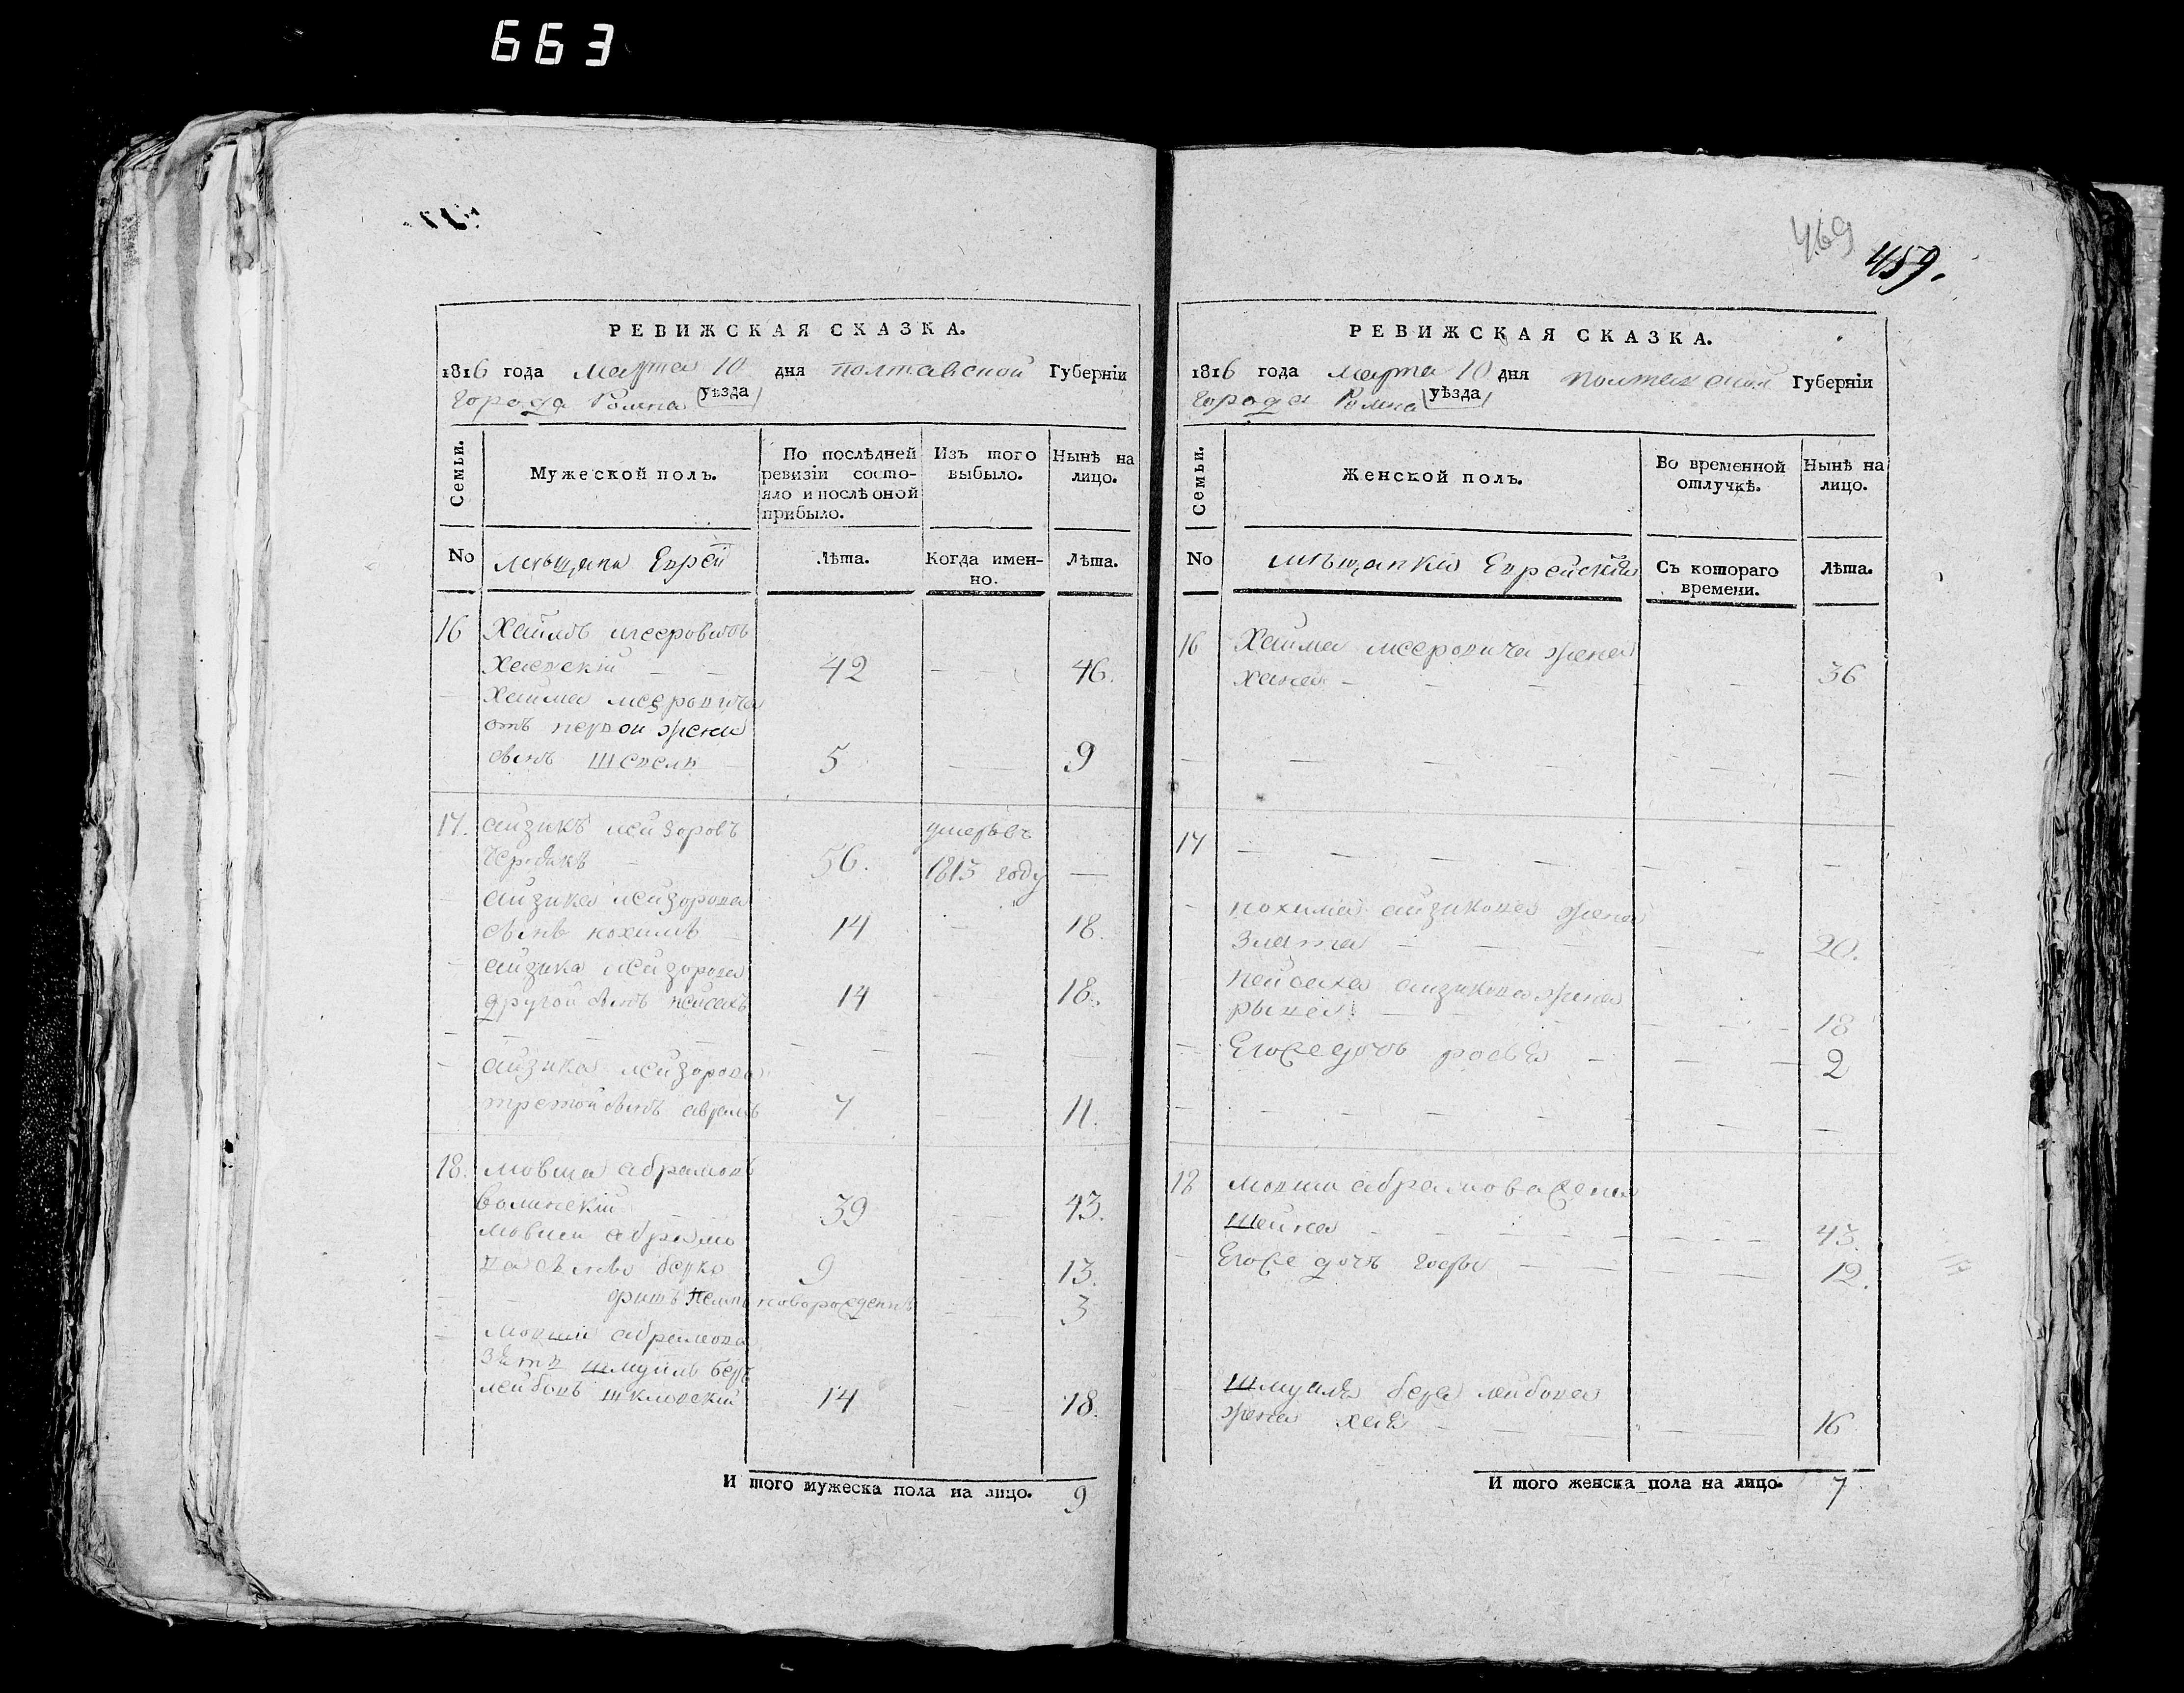 663
469
459.
РЕВИЖСКАЯ СКАЗКА.
1816 года Марта 10 дня Полтавской Губернїи
Города Ромна уѣзда
Семьи.
Мужеской полъ.
По послѣдней ревизїи состояло и послѣ оной прибыло.
Изъ того выбыло.
Нынѣ на лицо.
No
мещане Еврей
Лѣта.
Когда именно.
Лѣта.
16 Хаимъ мееровичъ
42 46.
Хаима меровича
отъ первой жени
сынъ 5 9
17. айзикъ лейзоровъ умеръ въ
56. 1813 году
айзика лейзорова
сынъ нохимъ 14 18.
айзика лейзорова
другой сынъ пейсахъ 14 18.
айзика лейзорова
третой сынъ абрамъ 7 11.
18. мовша абрамовъ
Волинскїй 39 43.
мовши абрамо
ва сынъ берко 9 13.
новорожденъ 3
мовши абрамова
зять шмуйль бер
лейбовъ шкловскїй 14 18.
И того мужеска пола на лицо. 9
РЕВИЖСКАЯ СКАЗКА.
1816 года марта 10 дня Полтавской Губернїи
Города Ромна уѣзда
Семьи.
Женской полъ.
Во временной отлучкѣ.
Нынѣ на лицо.
No
мѣщанки Еврейскїя
Съ котораго времени.
Лѣта.
16 Хаима меровича жена
хана 36
17
нохима айзикова жена
Злата 20.
пейсаха айзикова жена
рывка 18
Егоже дочь 2
18 мовши абрамова жена
Шейна 43.
Егоже дочь 12.
Шмуиля бера лейбова
жена хая 16
И того женска пола на лицо. 7